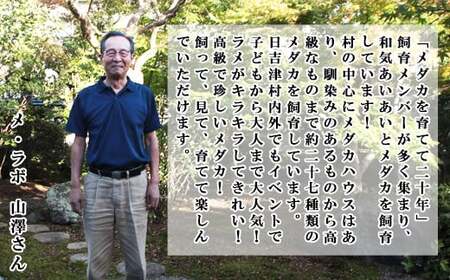 「メダカを育てて二十年」
飼育メンバーが多く集まり、
和気あいあいとメダカを飼育
しています！
村の中心にメダカハウスはあ
り、馴染みのあるものから高
級なものまで約二十七種類の
メダカを飼育しています。
日吉津村内外でもイベントで
子どもから大人まで大人気！
ラメがキラキラしてきれい！
高級で珍しいメダカ！
飼って、見て、育てて楽しん
でいただけます。
メ・ラボ　山澤さん